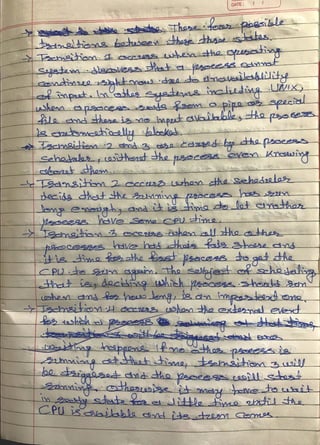 DATE
→ These four possible
transitions between these three states.
→ Transition 1 occurs when the operating
system discovers that a process cannot
continue right now due to unavailability
of input. In other systems including UNIX,
when a process reads from a pipe or special
file and there is no input available, the process
is automatically blocked.
→ Transition 2 and 3 are caused by the process
scheduler, without the process even knowing
about them.
→ Transition 2 occurs when the scheduler
decide that the running process has run
long enough, and it is time to let another
process have some CPU time.
→ Transition 3 occurs when all the other
processes have had their fair share and
it is time for the first process to get the
CPU to run again. The subject of scheduling
that is, deciding which process should run
when and for how long, is an important one.
→ Transition 4 occurs when the external event
for which a process
waiting happens. If no other process is
running at that time, transition 3 will
be triggered and the process will start
running, otherwise it may have to wait
in ready state for a little time until the
CPU is available and its turn comes